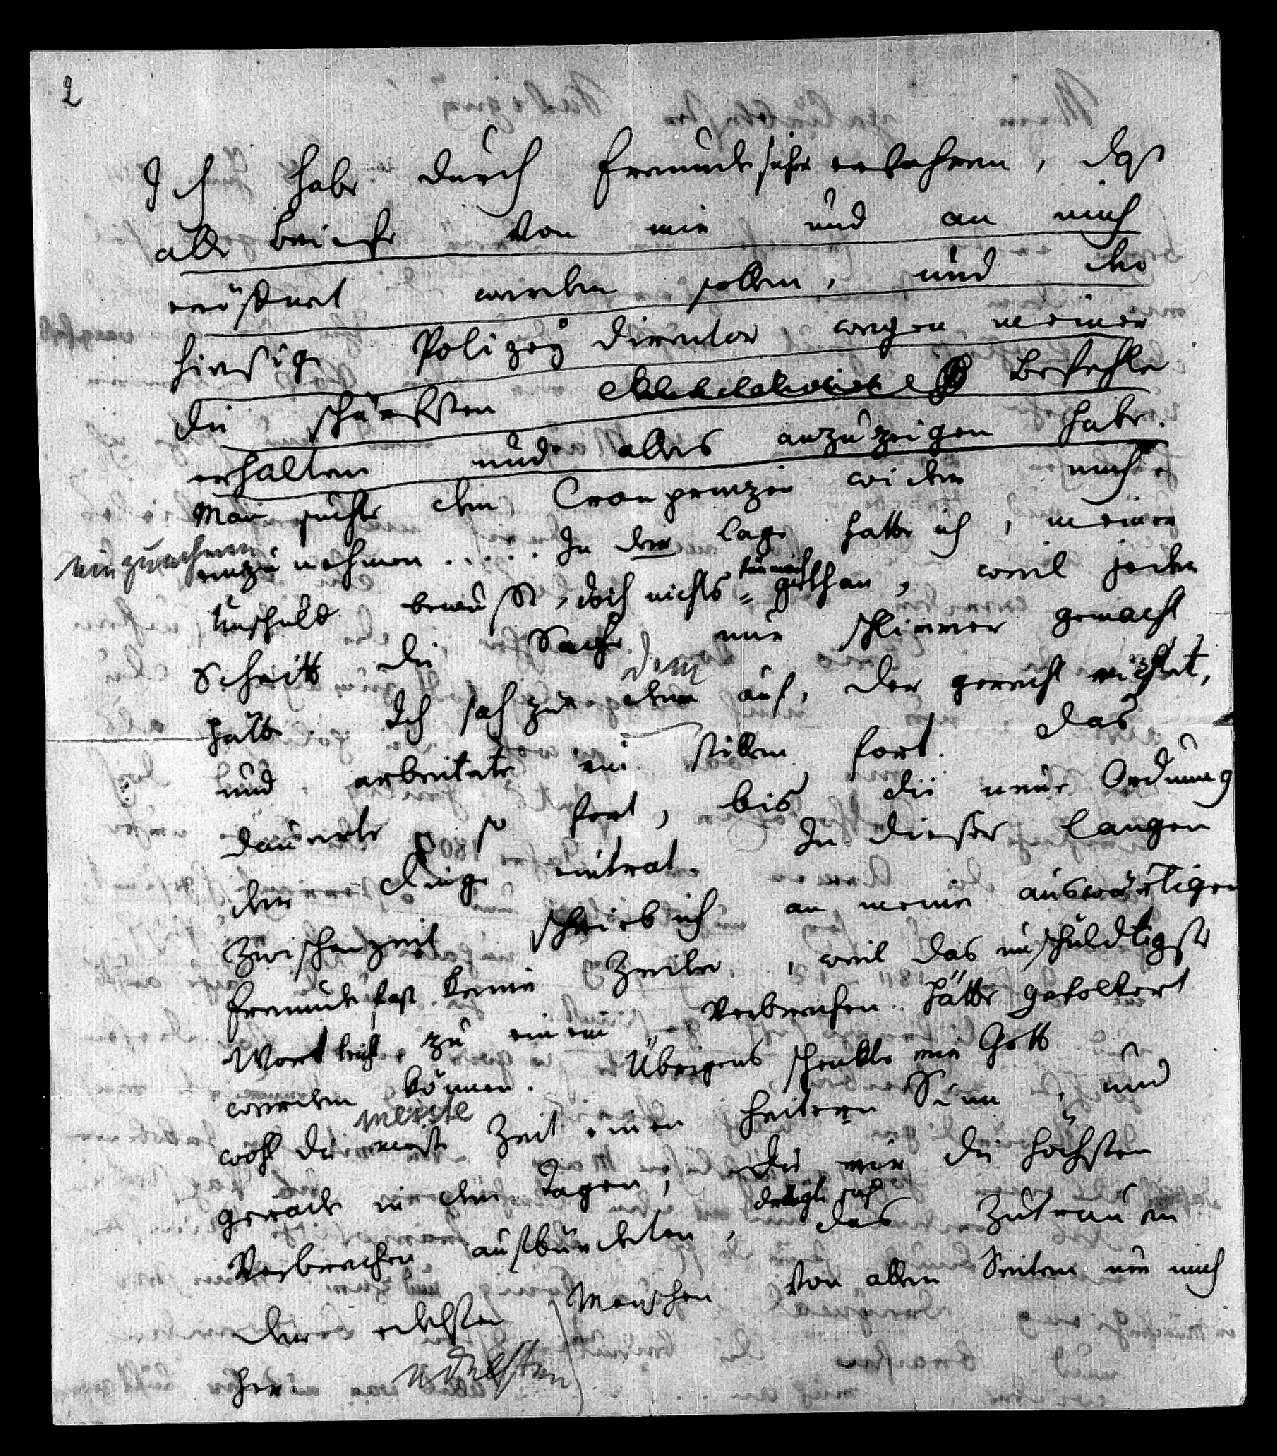 2
Ich habe durch Freunde sicher erfahren, daß
alle Briefe von mir und an mich
eröffnet werden sollen, und der
hiesige Polizey Director wegen meiner
die schärfsten Befehle
erhalten und alles anzuzeigen habe.
Man suchte den Cronprinzen wider mich
einzunehmen
einzunehmen ..... In der Lage hatte ich, meiner
Unschuld bewußt, doch nichts für mich gethan, weil jeder
Schritt die Sache nur schlimmer gemacht
dem
hätte. Ich sah zu dem auf, der gerecht richtet,
und arbeitete im stillen fort. Das
dauerte so fort, bis die neue Ordnung
der Dinge eintrat. In dieser langen
Zwischenzeit schrieb ich an meine auswärtigen
Freunde fast keine Zeile, weil das unschuldigste
Wort leicht zu einem Verbrechen hätte gefoltert
werden können. Übrigens schenkte mir Gott
meiste
wohl die meiste Zeit einen heitern Sinn, und
gerade in den Tagen, die mir die höchsten
Verbrechen aufbürdeten, drängte sich das Zutrauen
der edelsten Menschen von allen Seiten um mich
her.
edelsten